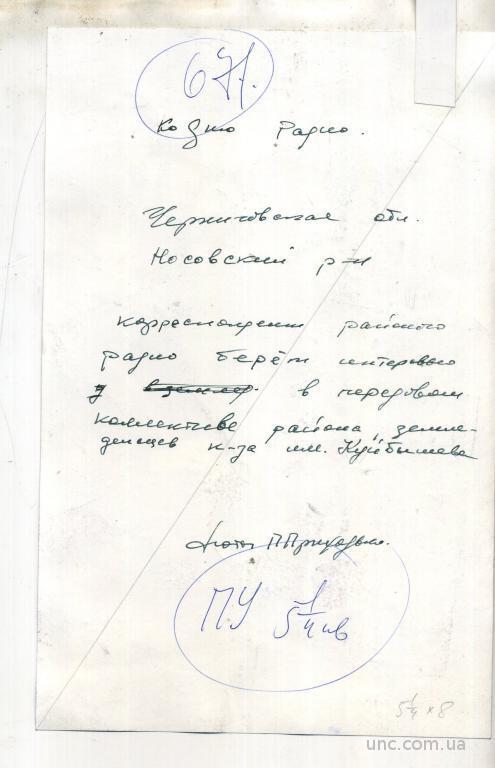 Ко Дню Радио.
Черниговская обл.
Носовский р-н
корреспондент районного
радио берёт интервью
у в передовом
коллективе района земле-
дельцев к-за им. Куйбышева
Фото П Приходько.
П.У 5 1/4 кв
5 1/4 x 8
unc.com.ua